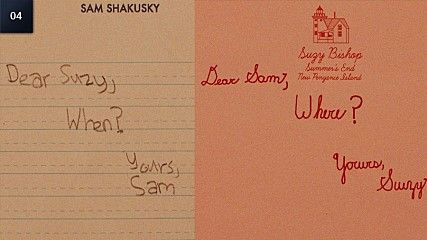 04
SAM SHAKUSKY
Dear Suzy,
When?
Yours,
Sam
Suzy Bishop
Summer's End
New Penzance Island
Dear Sam,
Where?
Yours,
Suzy